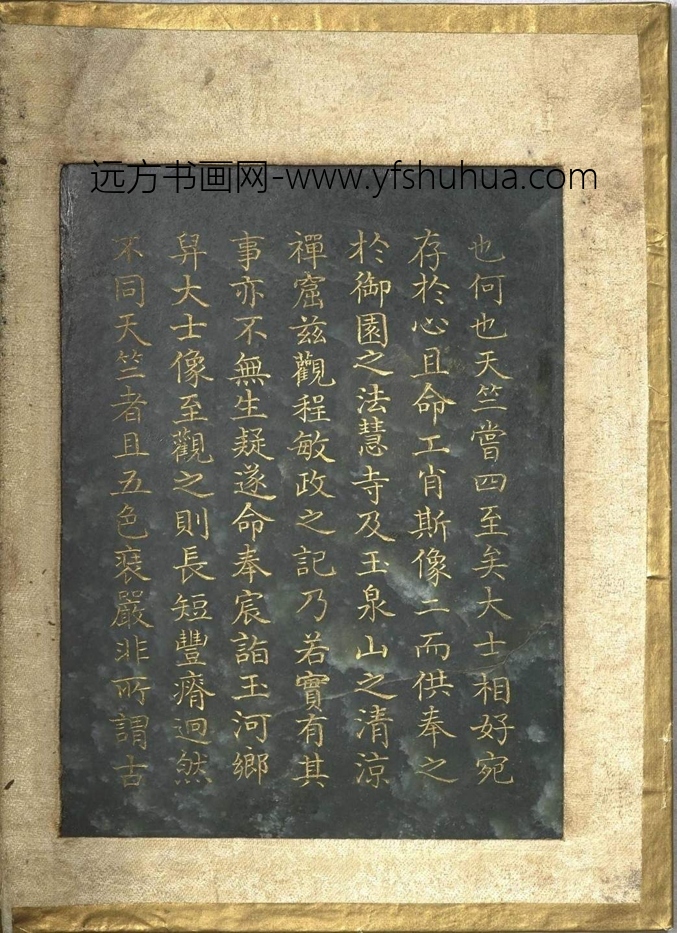 远方书画网-www.yfshuhua.com
也何也天竺嘗四至矣大士相好宛
存於心且命工肖斯像二而供奉之
於御園之法慧寺及玉泉山之清涼
禪窟茲觀程敏政之記乃若實有其
事亦不無生疑遂命奉宸詣玉河鄉
舁大士像至觀之則長短豐瘠迥然
不同天竺者且五色裝嚴非所謂古